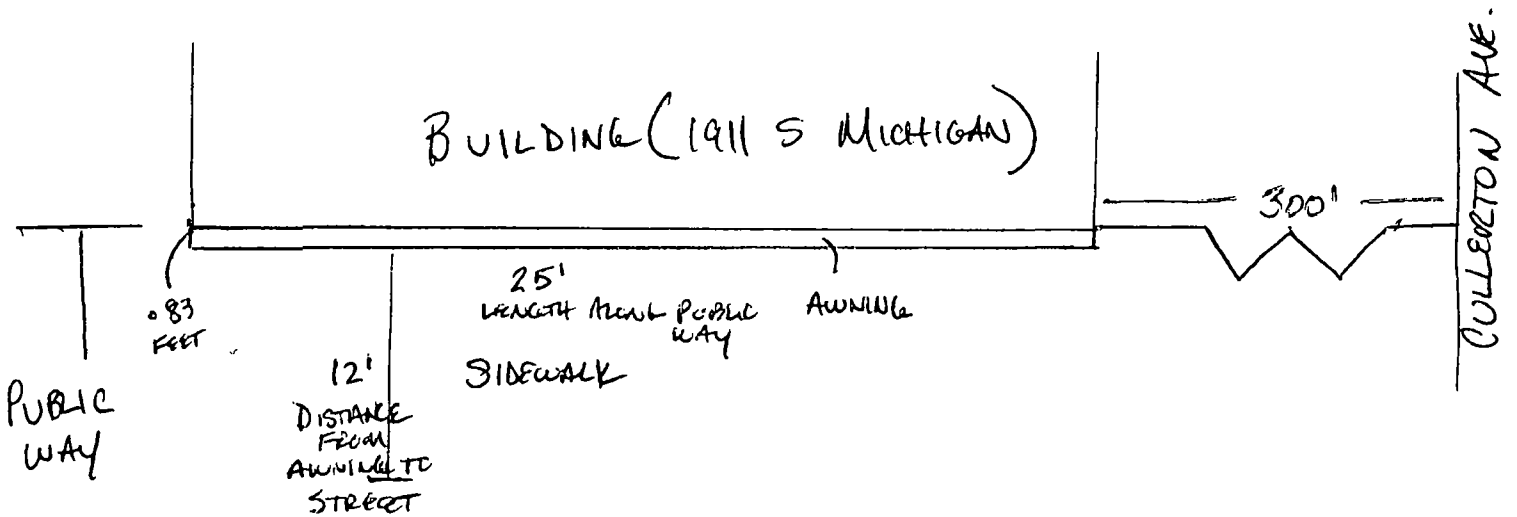 BUILDING (1911 S MICHIGAN)
300'
CULLERTON AVE.
.83
FEET
25'
LENGTH ALONG PUBLIC
WAY
AWNING
PUBLIC
WAY
12'
DISTANCE
FROM
AWNING TO
STREET
SIDEWALK